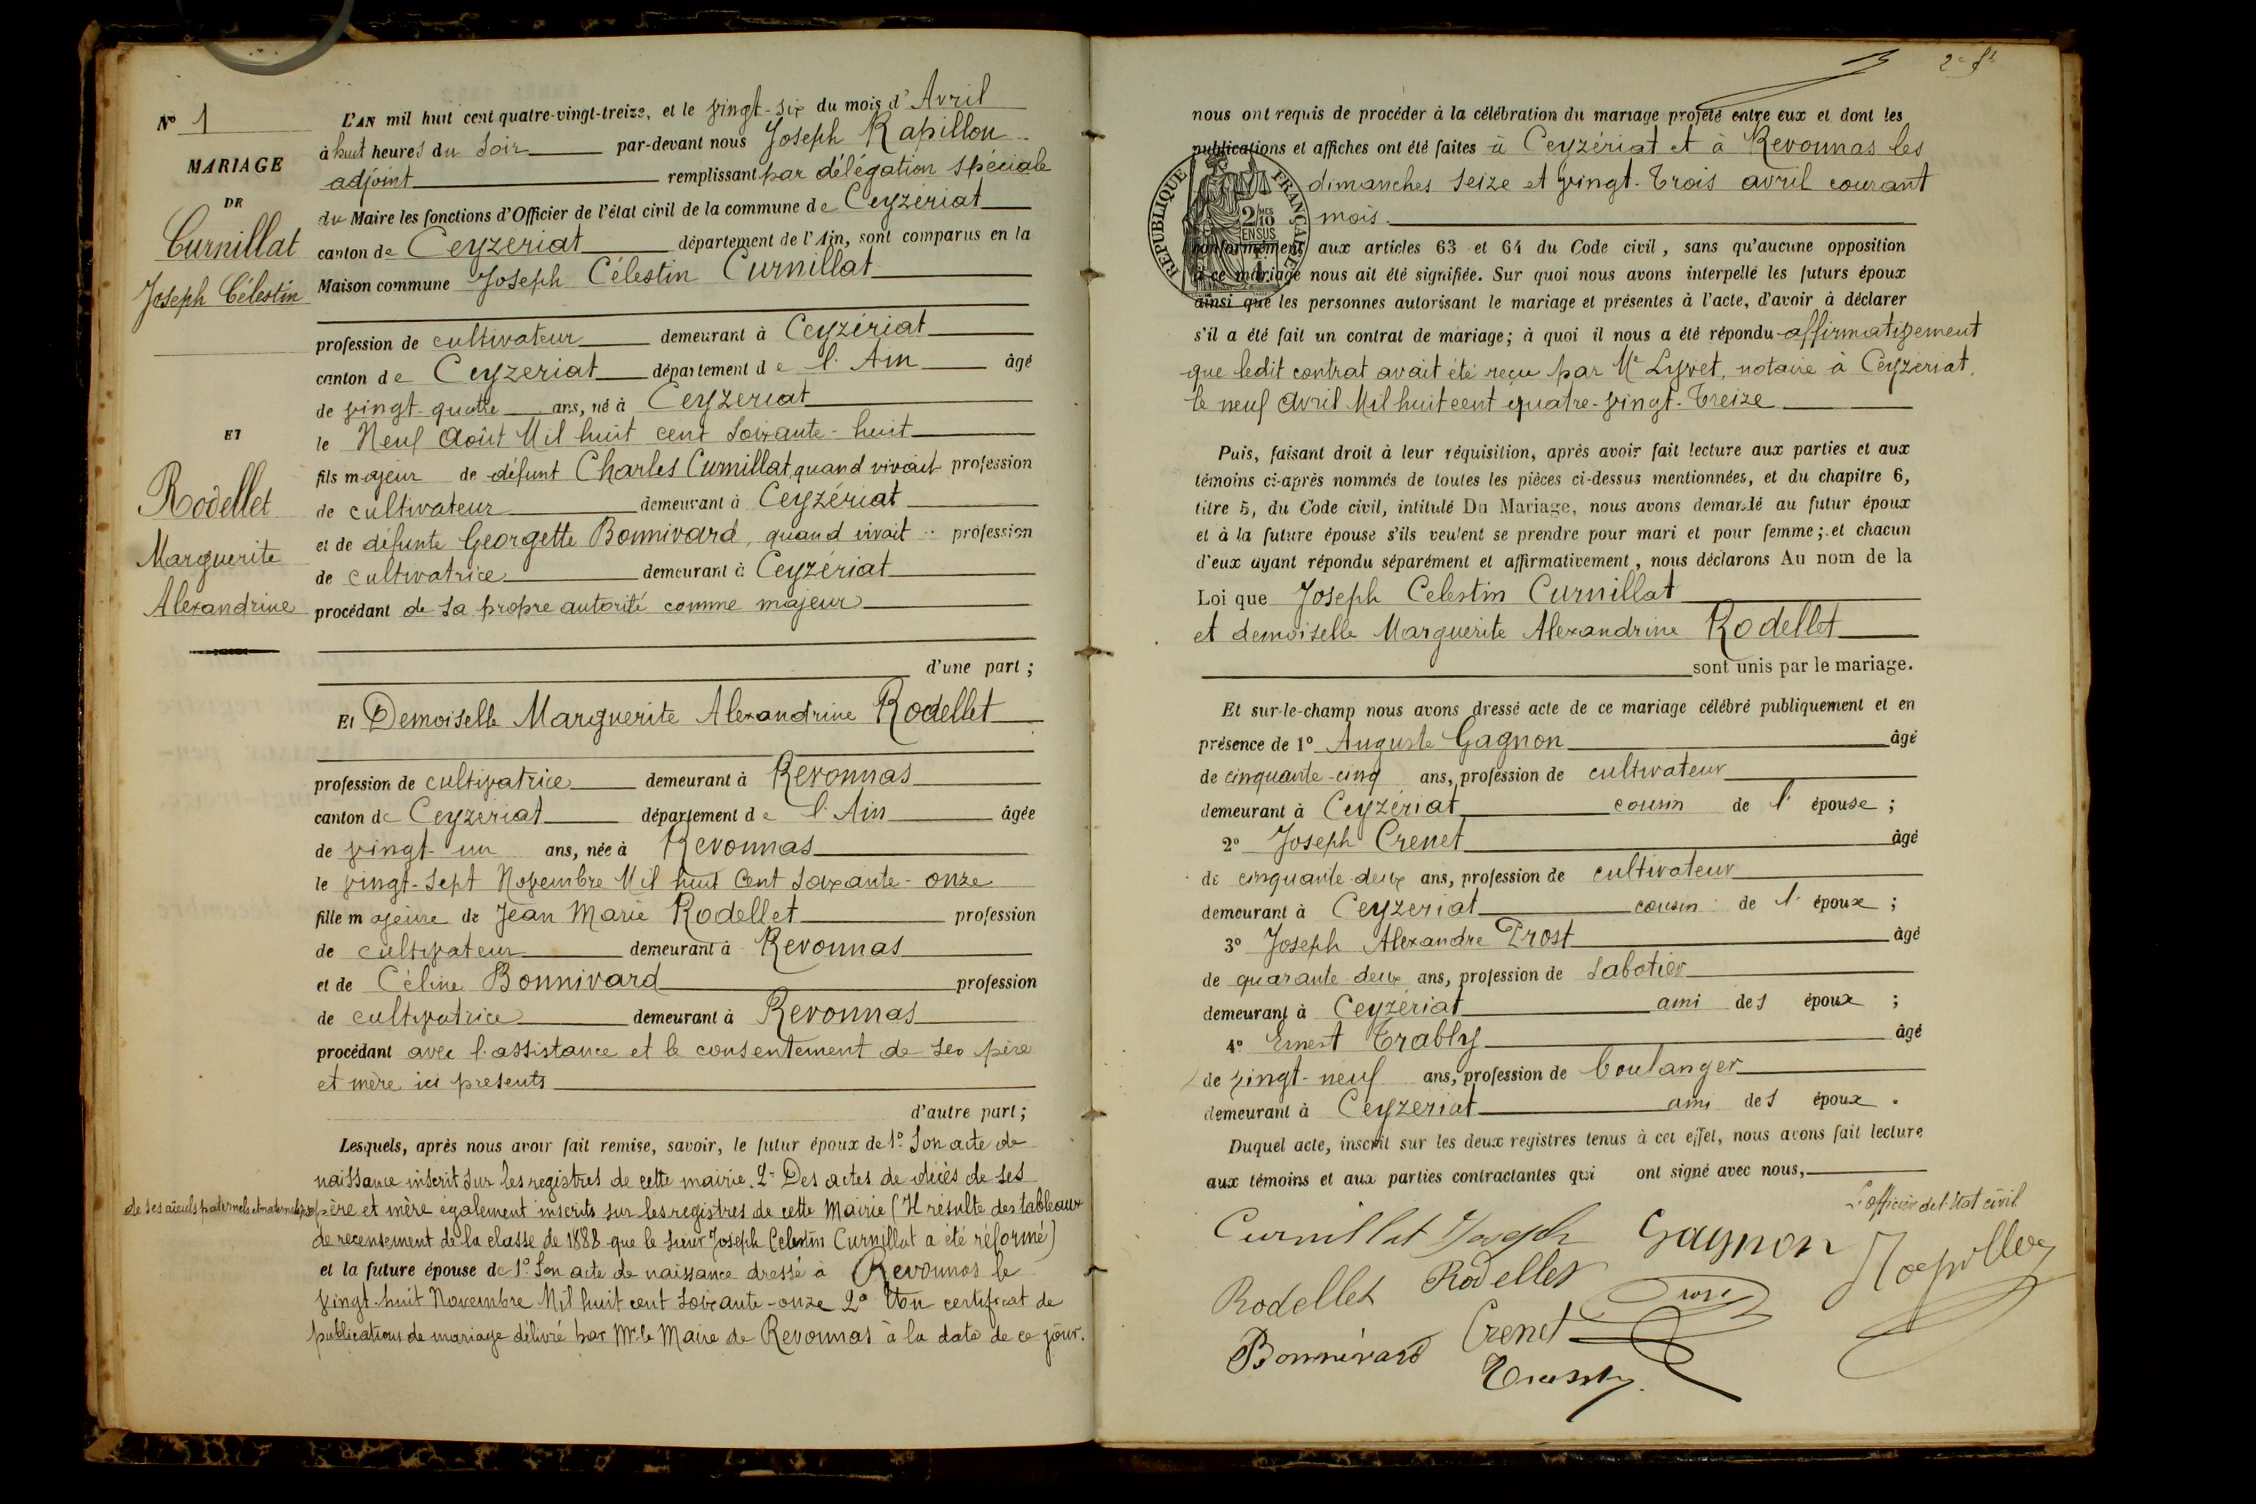 N° 1
MARIAGE
DE
Curnillat
Joseph Célestin
ET
Rodellet
Marguerite
Alexandrine
L'AN mil huit cent quatre-vingt-treize, et le vingt-six du mois d'Avril
à huit heures du soir par-devant nous Joseph Rapillon
adjoint remplissant par délégation spéciale
du Maire les fonctions d'Officier de l'état civil de la commune de Ceyzériat
canton de Ceyzeriat département de l'Ain, sont comparus en la
Maison commune Joseph Célestin Curnillat
profession de cultivateur demeurant à Ceyzériat
canton de Ceyzeriat département de l'Ain âgé
de vingt-quatre ans, né à Ceyzeriat
le Neuf Août Mil huit cent soixante-huit
fils majeur de défunt Charles Curnillat, quand vivait profession
de cultivateur demeurant à Ceyzériat
et de défunte Georgette Bonnivard, quand vivait profession
de cultivatrice demeurant à Ceyzériat
procédant de sa propre autorité comme majeur
d'une part ;
Et Demoiselle Marguerite Alexandrine Rodellet
profession de cultivatrice demeurant à Revonnas
canton de Ceyzériat département de l'Ain âgée
de vingt-un ans, née à Revonnas
le vingt-sept Novembre Mil huit Cent soixante-onze
fille majeure de Jean Marie Rodellet profession
de cultivateur demeurant à Revonnas
et de Céline Bonnivard profession
de cultivatrice demeurant à Revonnas
procédant avec l'assistance et le consentement de ses père
et mère ici présents
d'autre part ;
Lesquels, après nous avoir fait remise, savoir, le futur époux de 1° Son acte de
naissance inscrit sur les registres de cette mairie. 2° Des actes de décès de ses
de ses aïeuls paternels et maternels
père et mère également inscrits sur les registres de cette Mairie (Il résulte des tableaux
de recensement de la classe de 1888 que le sieur Joseph Celestin Curnillat a été réformé)
et la future épouse de 1° Son acte de naissance dressé à Revonnas le
vingt-huit Novembre Mil huit cent soixante-onze 2° Un certificat de
publications de mariage délivré par Mr le Maire de Revonnas à la date de ce jour.
nous ont requis de procéder à la célébration du mariage projeté entre eux et dont les
publications et affiches ont été faites à Ceyzériat et à Revonnas les
dimanches seize et vingt-trois avril courant
mois
RÉPUBLIQUE FRANÇAISE
2/10 EN SUS
conformément aux articles 63 et 64 du Code civil, sans qu'aucune opposition
à ce mariage nous ait été signifiée. Sur quoi nous avons interpellé les futurs époux
ainsi que les personnes autorisant le mariage et présentes à l'acte, d'avoir à déclarer
s'il a été fait un contrat de mariage ; à quoi il nous a été répondu affirmativement
que ledit contrat avait été reçu par Me Lyvet, notaire à Ceyzériat,
le neuf Avril Mil huit cent quatre-vingt-treize
Puis, faisant droit à leur réquisition, après avoir fait lecture aux parties et aux
témoins ci-après nommés de toutes les pièces ci-dessus mentionnées, et du chapitre 6,
titre 5, du Code civil, intitulé Du Mariage, nous avons demandé au futur époux
et à la future épouse s'ils veulent se prendre pour mari et pour femme ; et chacun
d'eux ayant répondu séparément et affirmativement, nous déclarons Au nom de la
Loi que Joseph Celestin Curnillat
et demoiselle Marguerite Alexandrine Rodellet
sont unis par le mariage.
Et sur-le-champ nous avons dressé acte de ce mariage célébré publiquement et en
présence de 1° Auguste Gagnon âgé
de cinquante-cinq ans, profession de cultivateur
demeurant à Ceyzériat cousin de l'épouse ;
2° Joseph Crenet âgé
de cinquante-deux ans, profession de cultivateur
demeurant à Ceyzeriat cousin de l'époux ;
3° Joseph Alexandre Prost âgé
de quarante-deux ans, profession de sabotier
demeurant à Ceyzériat ami des époux ;
4° Ernest Trably âgé
de vingt-neuf ans, profession de boulanger
demeurant à Ceyzeriat ami des époux.
Duquel acte, inscrit sur les deux registres tenus à cet effet, nous avons fait lecture
aux témoins et aux parties contractantes qui ont signé avec nous,
L'officier de l'état civil
Curnillat Joseph Gagnon Rapillon
Rodellet Rodellet Prost
Bonnivard Crenet
Trably